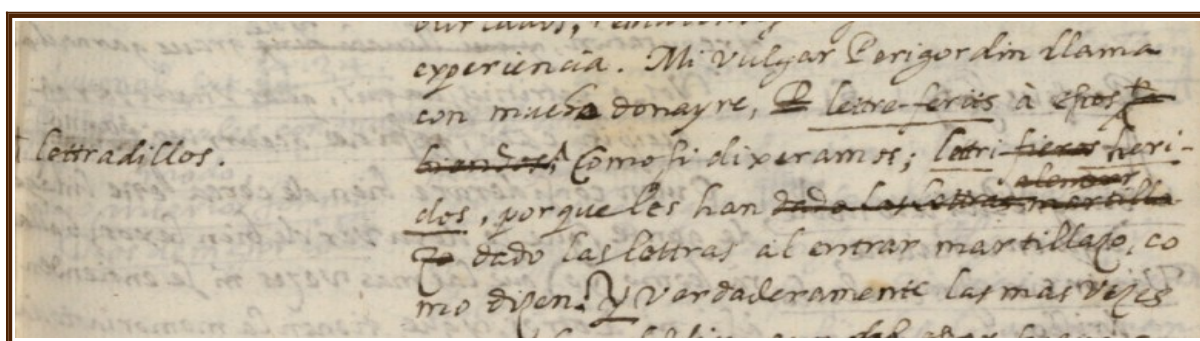 experiencia. Mi vulgar Perigordin llama
con mucho donayre, lettre-ferits à estos
lettradillos.
Como si dixeramos; lettri heri-
dos, porque les han dado las lettras martilla
al entrar
zo dado las lettras al entrar martillazo, co
mo dizen: Y verdaderamente las mas vezes